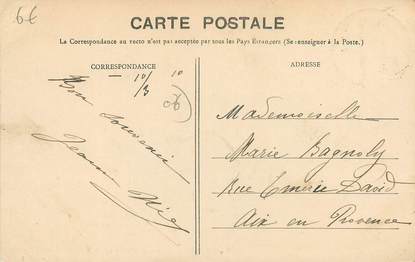 6€
CARTE POSTALE
La Correspondance au recto n'est pas acceptée par tous les Pays Étrangers (Se renseigner à la Poste.)
CORRESPONDANCE
— 10/3 10
Bon souvenir
Jeanne
ADRESSE
Mademoiselle
Marie Bagnoly
Rue Emeric David
Aix en Provence